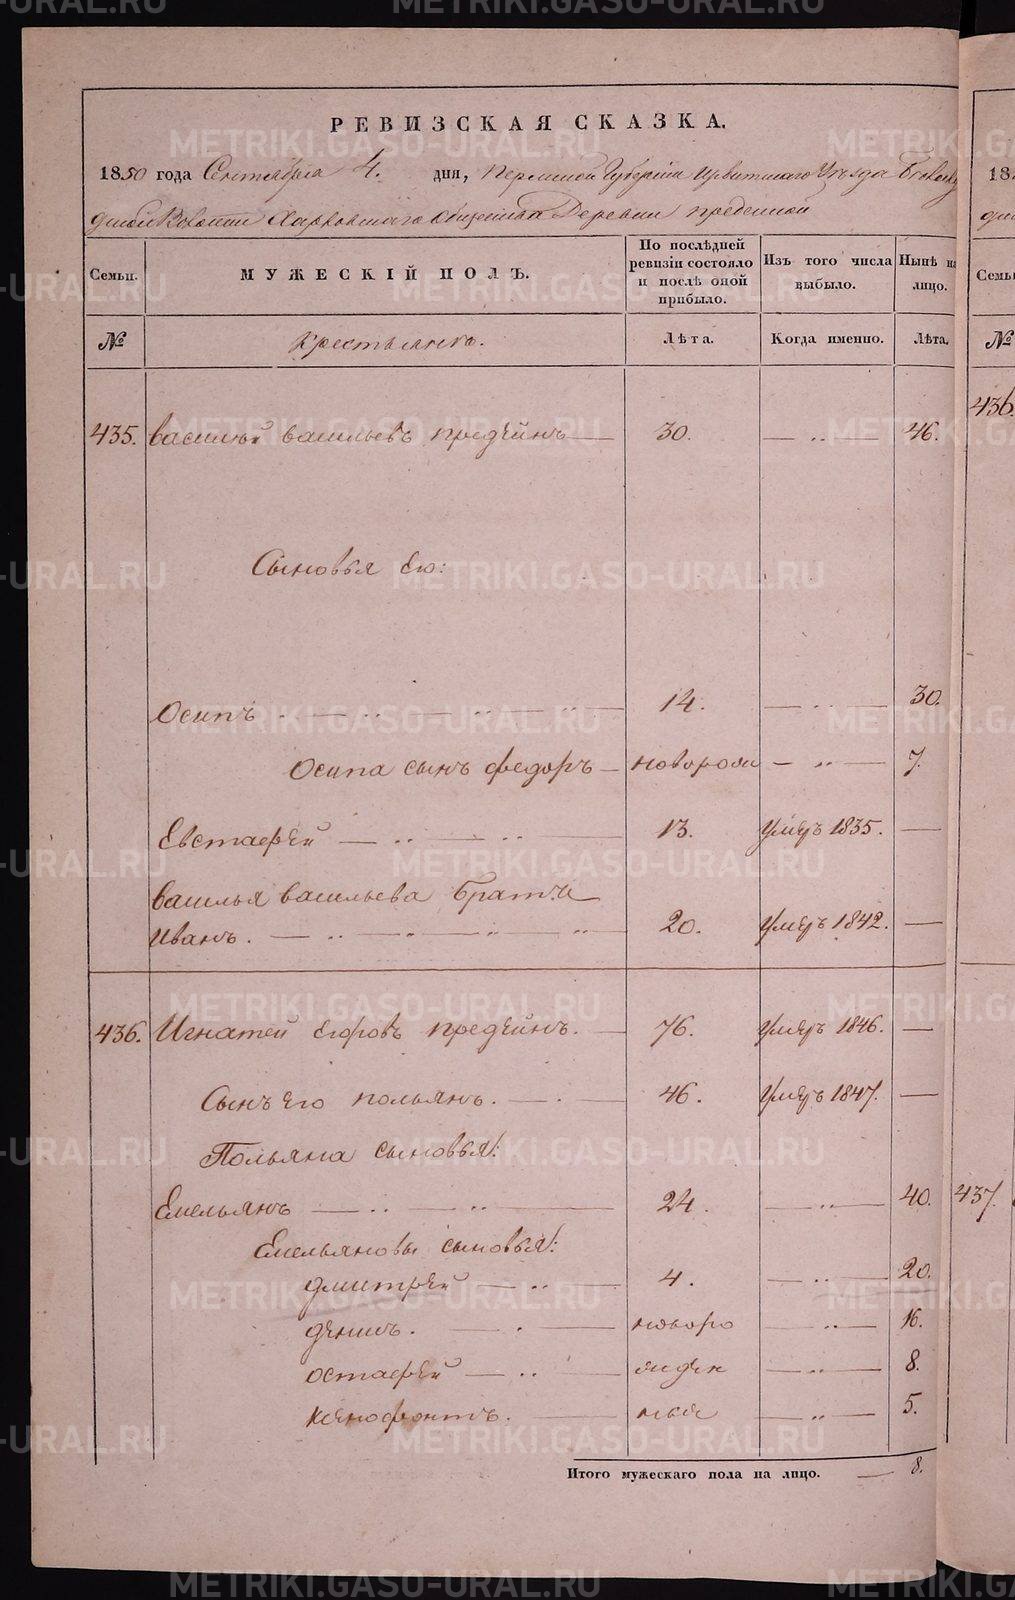 РЕВИЗСКАЯ СКАЗКА.
1850 года Сентября 4. дня, Пермской Губернiи Ирбитскаго Уѣзда
Волости Харловскаго общества Деревни
Семьи.
МУЖЕСКIЙ ПОЛЪ.
По послѣдней ревизiи состояло и послѣ оной прибыло.
Изъ того числа выбыло.
Нынѣ на лицо.
№
Крестьянъ.
Лѣта.
Когда именно.
Лѣта.
435. Василей Васильевъ предеинъ 30. — .. — 46.
Сыновья его:
Осипъ 14. — .. — 30.
Осипа сынъ федоръ новорож — .. — 7.
Евстафей 13. умеръ 1835. —
Василья Васильева братъ
Иванъ. 20. умеръ 1842. —
436. Игнатей Егоровъ предеинъ. 76. умеръ 1846. —
Сынъ Его польянъ. 46. умеръ 1847. —
Польяна сыновья:
Емельянъ 24. — .. — 40.
Емельяновы сыновья:
дмитрей 4. — .. — 20.
денисъ. новоро — .. — 16.
остафей жден — .. — 8.
ксенофонтъ. ные — .. — 5.
Итого мужескаго пола на лицо. — 8.
18
Семьи
№
436.
437.
METRIKI.GASO-URAL.RU